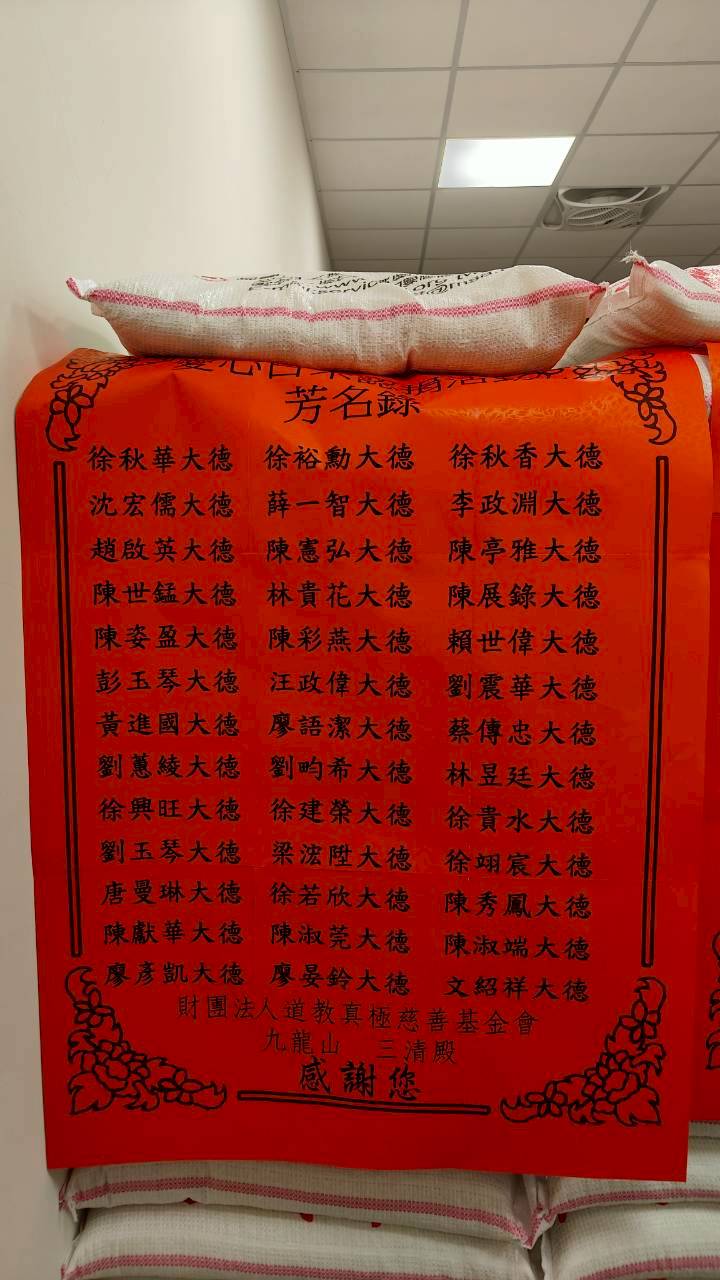 芳名錄
徐秋華大德 徐裕勳大德 徐秋香大德
沈宏儒大德 薛一智大德 李政淵大德
趙啟英大德 陳憲弘大德 陳亭雅大德
陳世錳大德 林貴花大德 陳展錄大德
陳姿盈大德 陳彩燕大德 賴世偉大德
彭玉琴大德 汪政偉大德 劉震華大德
黃進國大德 廖語潔大德 蔡傳忠大德
劉蕙綾大德 劉畇希大德 林昱廷大德
徐興旺大德 徐建榮大德 徐貴水大德
劉玉琴大德 梁浤陞大德 徐翊宸大德
唐曼琳大德 徐若欣大德 陳秀鳳大德
陳獻華大德 陳淑莞大德 陳淑端大德
廖彥凱大德 廖晏鈴大德 文紹祥大德
財團法人道教真極慈善基金會
九龍山 三清殿
感謝您